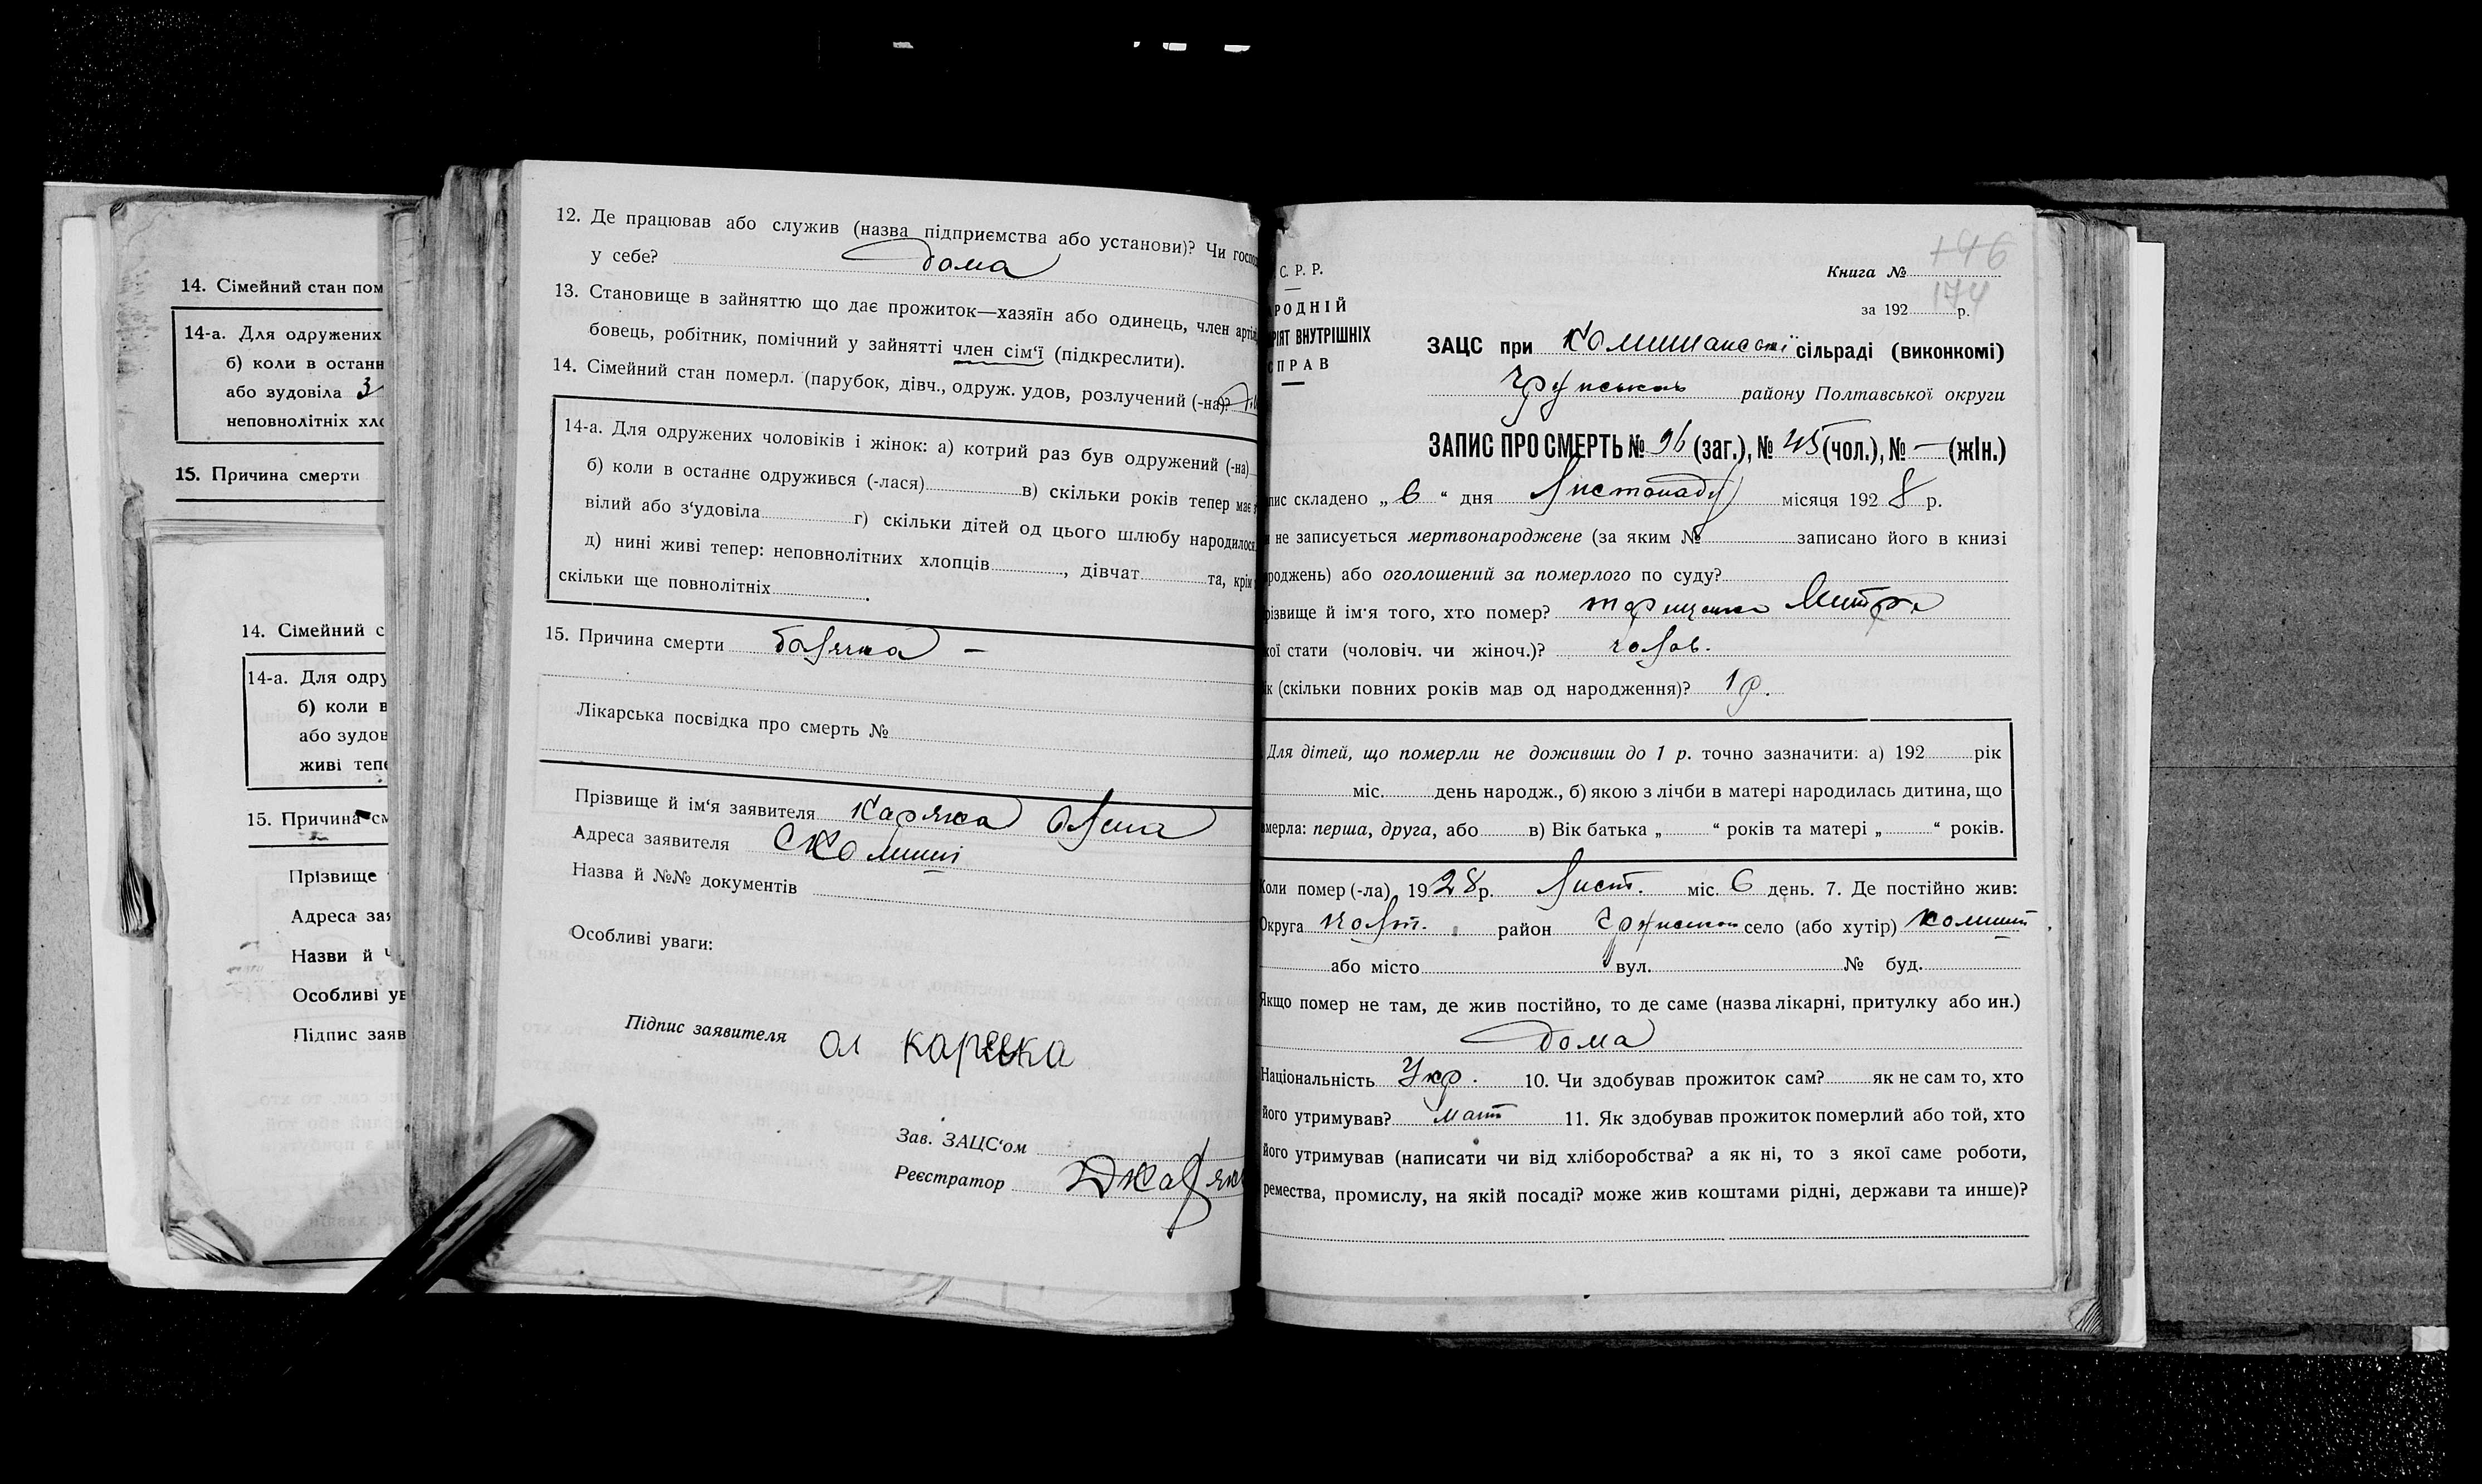 14. Сімейний стан пом
14-а. Для одружених
б) коли в останн
або зудовіла 3
неповнолітніх хло
15. Причина смерти
14. Сімейний с
14-а. Для одру
б) коли в
або зудов
живі тепе
15. Причина см
Прізвище
Адреса зая
Назви й
Особливі ув
Підпис заяв
12. Де працював або служив (назва підприємства або установи)? Чи госпо
у себе? дома
13. Становище в зайняттю що дає прожиток—хазяїн або одинець, член артіл
бовець, робітник, помічний у зайнятті член сім‘ї (підкреслити).
14. Сімейний стан померл. (парубок, дівч., одруж. удов, розлучений (-на)?
14-а. Для одружених чоловіків і жінок: а) котрий раз був одружений (-на)
б) коли в останнє одружився (-лася) в) скільки років тепер має з
вілий або з‘удовіла г) скільки дітей од цього шлюбу народилося
д) нині живі тепер: неповнолітних хлопців , дівчат та, крім
скільки ще повнолітніх .
15. Причина смерти болячка —
Лікарська посвідка про смерть №
Прізвище й ім‘я заявителя Каряка Олена
Адреса заявителя С Комиші
Назва й №№ документів
Особливі уваги:
Підпис заявителя Ол каряка
Зав. ЗАЦС‘ом
Реєстратор
С. Р. Р.
АРОДНІЙ
РІЯТ ВНУТРІШНІХ
СПРАВ
146
Книга № 174
за 192 р.
ЗАЦС при Комишанській сільраді (виконкомі)
Грунськом району Полтавської округи
ЗАПИС ПРО СМЕРТЬ № 96 (заг.), № 45 (чол.), № — (жін.)
пис складено „ 6 “ дня Листопаду місяця 192 8 р.
и не записується мертвонароджене (за яким № записано його в книзі
роджень) або оголошений за померлого по суду?
різвище й ім‘я того, хто помер? Митро
кої стати (чоловіч. чи жіноч.)? чолов.
ік (скільки повних років мав од народження)? 1 р.
Для дітей, що померли не доживши до 1 р. точно зазначити: а) 192 рік
міс. день народж., б) якою з лічби в матері народилась дитина, що
вмерла: перша, друга, або в) Вік батька „ “ років та матері „ “ років.
Коли помер (-ла), 1928 р. Лист. міс. 6 день. 7. Де постійно жив:
Округа Полт. район Грунськом село (або хутір) Комиші
або місто вул. № буд.
Якщо помер не там, де жив постійно, то де саме (назва лікарні, притулку або ин.)
дома
Національність Укр. 10. Чи здобував прожиток сам? як не сам то, хто
його утримував? мати 11. Як здобував прожиток померлий або той, хто
його утримував (написати чи від хліборобства? а як ні, то з якої саме роботи,
ремества, промислу, на якій посаді? може жив коштами рідні, держави та инше)?